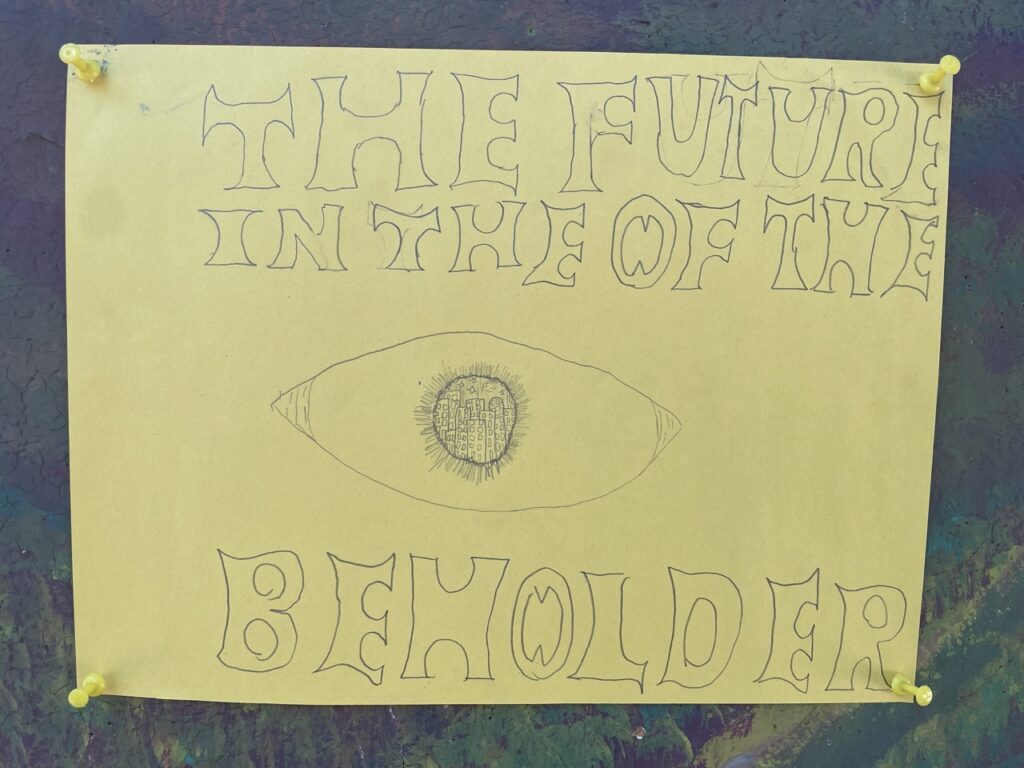 THE FUTURE
IN THE OF THE
BEHOLDER